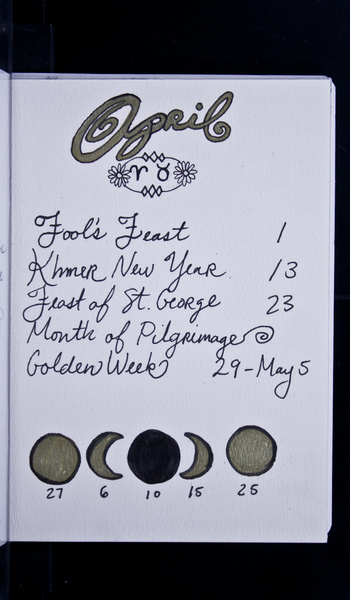 April
♈ ♉
Fool's Feast 1
Khmer New Year 13
Feast of St. George 23
Month of Pilgrimage
Golden Week 29-May 5
27 6 10 15 25